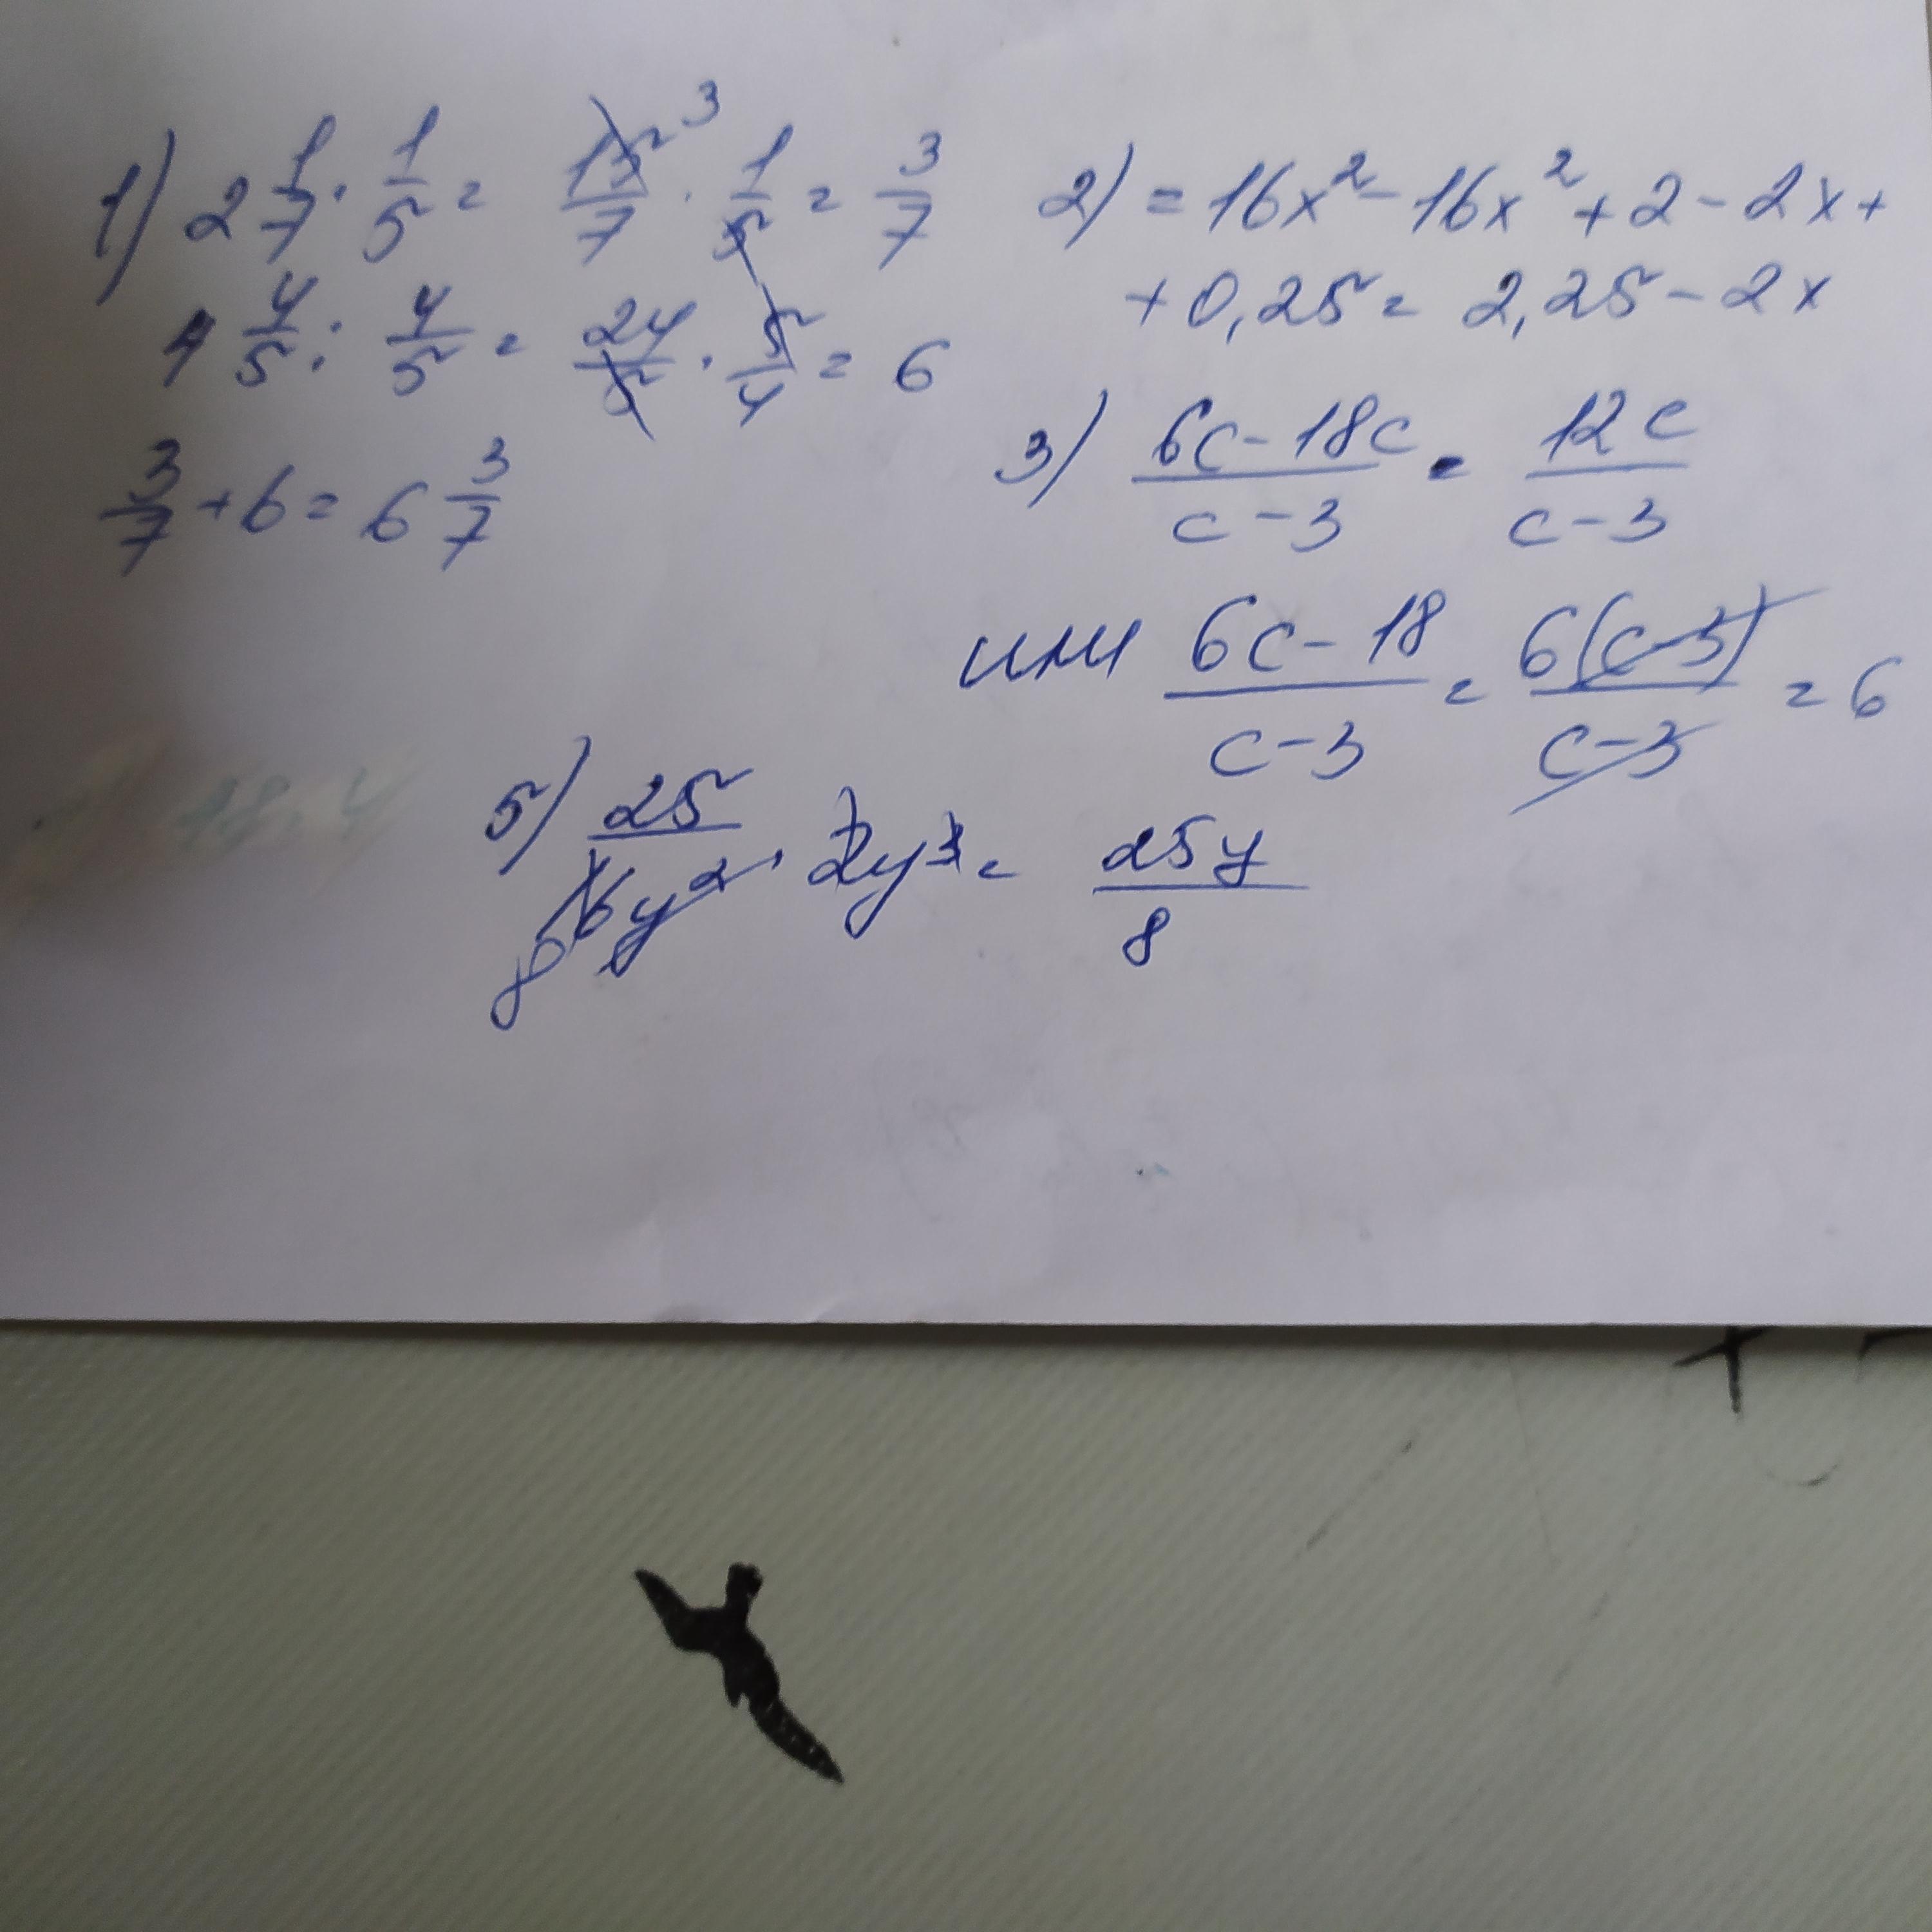 1) 2 1/7 · 1/5 = 15/7 · 1/5 = 3/7
4 4/5 : 4/5 = 24/5 · 5/4 = 6
3/7 + 6 = 6 3/7
2) = 16x² - 16x² + 2 - 2x +
+ 0,25 = 2,25 - 2x
3) 6c - 18c / c - 3 = 12c / c - 3
или 6c - 18 / c - 3 = 6(c-3) / c-3 = 6
5) 25 / 16y² · 2y³ = 25y / 8